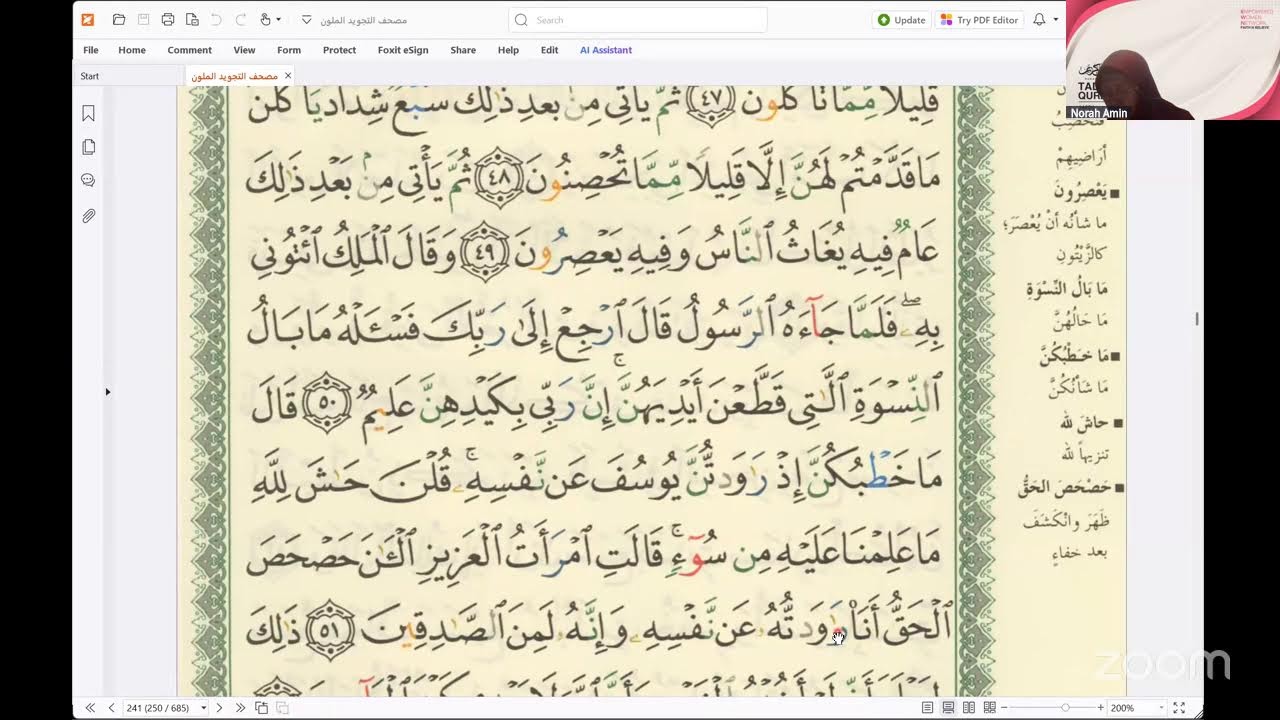 مصحف التجويد الملون
Search
Update
Try PDF Editor
File Home Comment View Form Protect Foxit eSign Share Help Edit AI Assistant
Start
مصحف التجويد الملون
EMPOWERED
WOMEN
NETWORK
Norah Amin
قَلِيلًا مِّمَّا تَأْكُلُونَ ٤٧ ثُمَّ يَأْتِي مِنۢ بَعْدِ ذَٰلِكَ سَبْعٌ شِدَادٌ يَأْكُلْنَ
مَا قَدَّمْتُمْ لَهُنَّ إِلَّا قَلِيلًا مِّمَّا تُحْصِنُونَ ٤٨ ثُمَّ يَأْتِي مِنۢ بَعْدِ ذَٰلِكَ
عَامٌ فِيهِ يُغَاثُ ٱلنَّاسُ وَفِيهِ يَعْصِرُونَ ٤٩ وَقَالَ ٱلْمَلِكُ ٱئْتُونِي
بِهِۦ ۖ فَلَمَّا جَآءَهُ ٱلرَّسُولُ قَالَ ٱرْجِعْ إِلَىٰ رَبِّكَ فَسْـَٔلْهُ مَا بَالُ
ٱلنِّسْوَةِ ٱلَّٰتِي قَطَّعْنَ أَيْدِيَهُنَّ ۚ إِنَّ رَبِّي بِكَيْدِهِنَّ عَلِيمٌ ٥٠ قَالَ
مَا خَطْبُكُنَّ إِذْ رَٰوَدتُّنَّ يُوسُفَ عَن نَّفْسِهِۦ ۚ قُلْنَ حَٰشَ لِلَّهِ
مَا عَلِمْنَا عَلَيْهِ مِن سُوٓءٍ ۚ قَالَتِ ٱمْرَأَتُ ٱلْعَزِيزِ ٱلْـَٰٔنَ حَصْحَصَ
ٱلْحَقُّ أَنَا۠ رَٰوَدتُّهُۥ عَن نَّفْسِهِۦ وَإِنَّهُۥ لَمِنَ ٱلصَّٰدِقِينَ ٥١ ذَٰلِكَ
أَرَاضِيهِمْ
يَعْصِرُونَ
ما شأنُه أنْ يُعْصَر؛
كالزَّيْتُونِ
مَا بَالُ النِّسْوَةِ
مَا حَالُهُنَّ
مَا خَطْبُكُنَّ
مَا شَأْنُكُنَّ
حاشَ لله
تنزيهاً لله
حَصْحَصَ الحَقُّ
ظَهَر وانْكَشَفَ
بعد خفاءٍ
zoom
241 (250 / 685)
200%